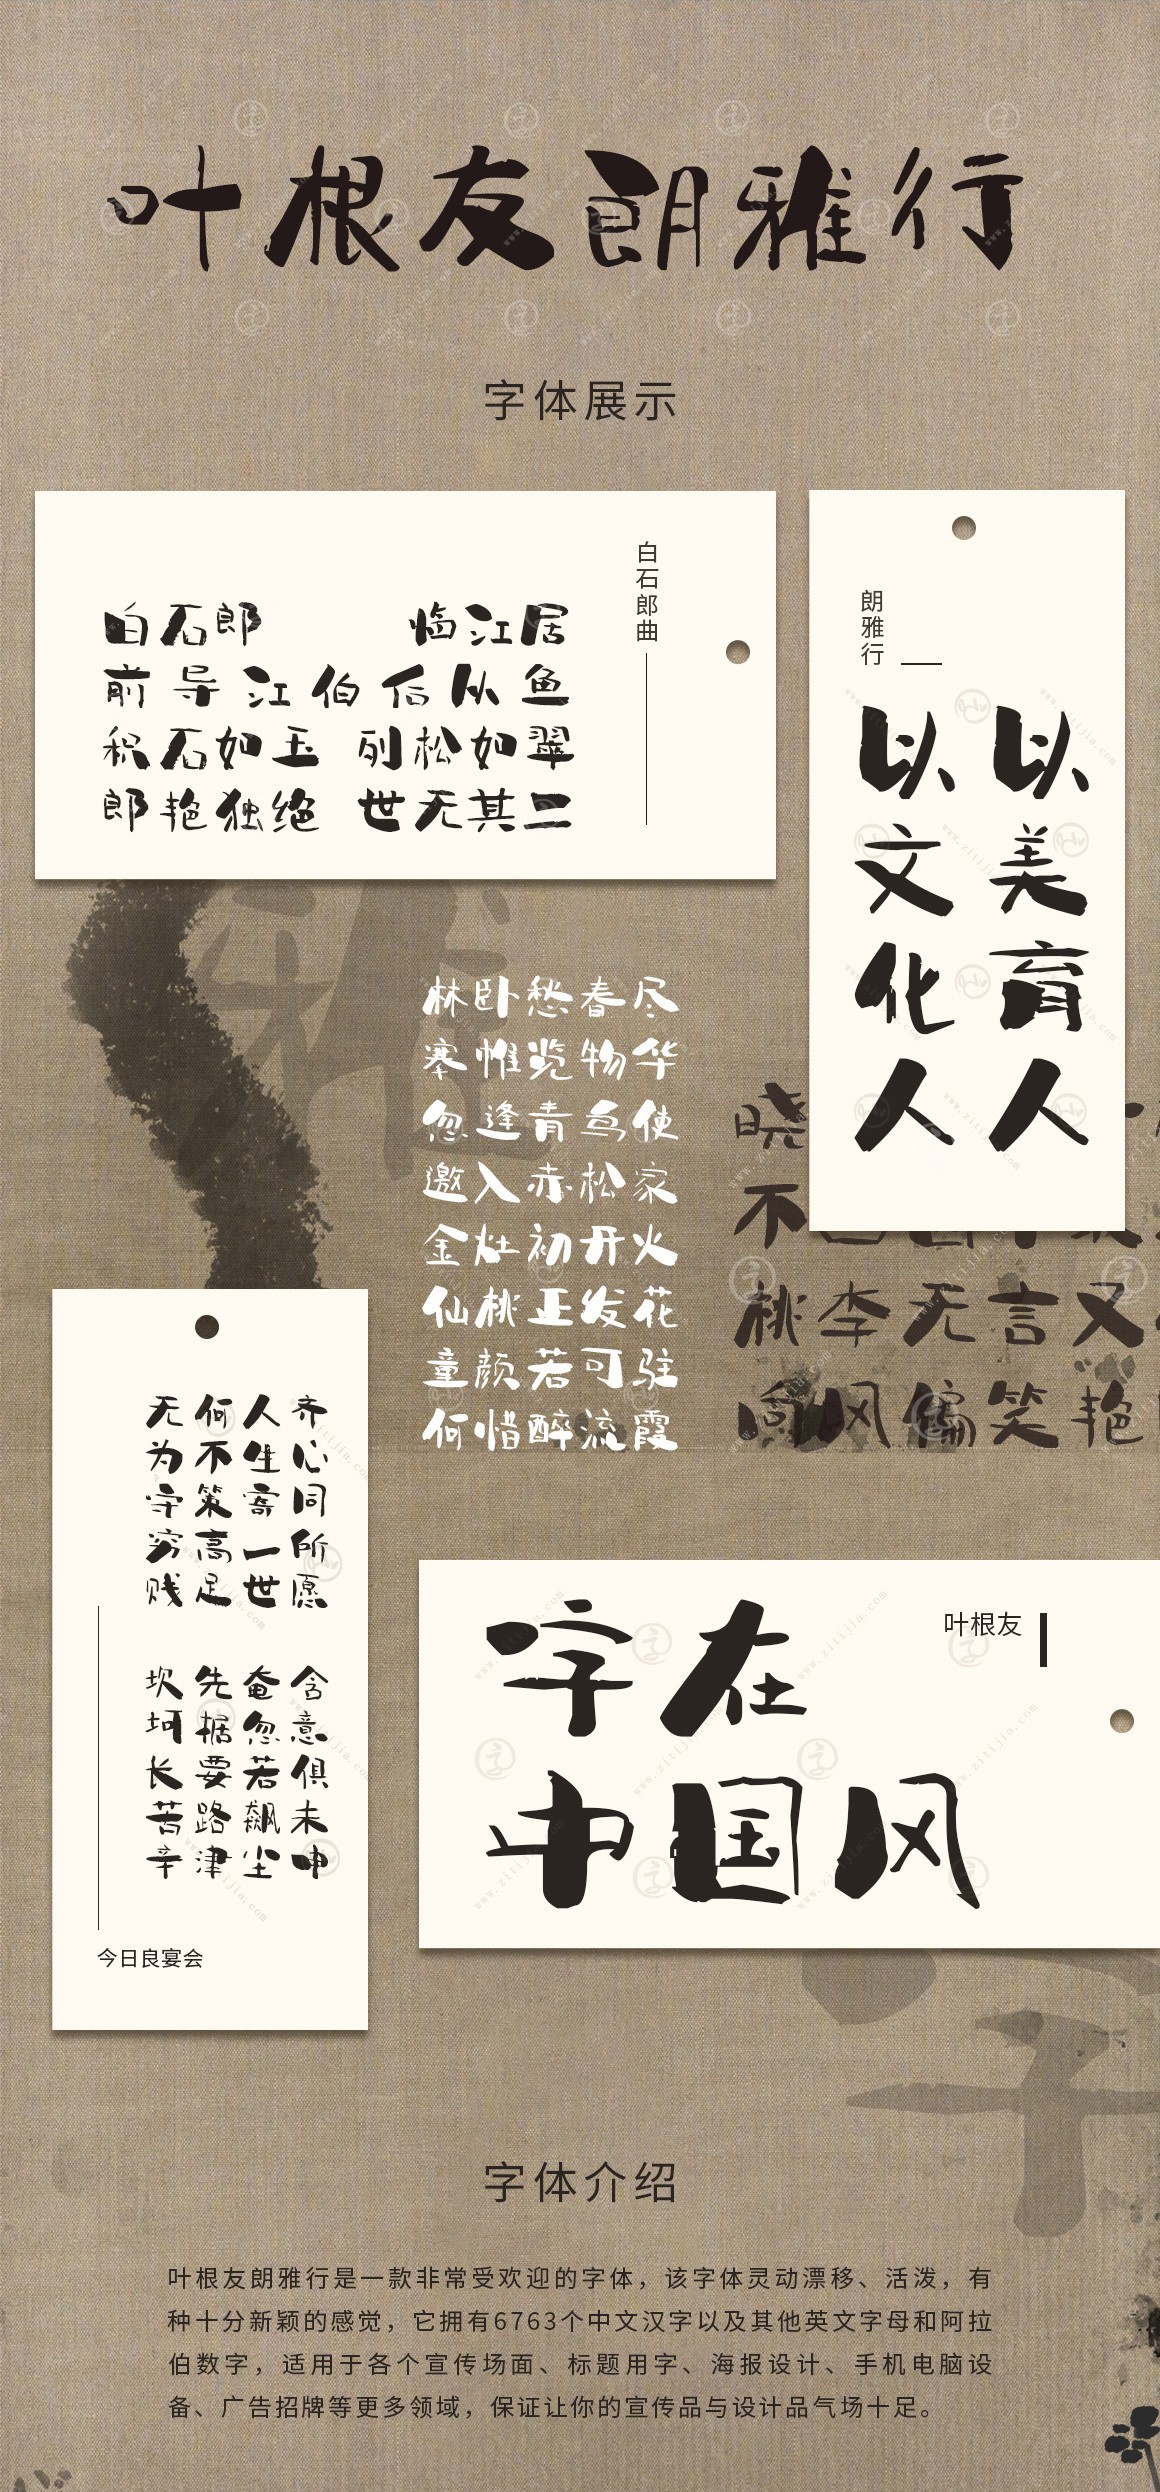 叶根友朗雅行
字体展示
白石郎 临江居
前导江伯后从鱼
积石如玉 列松如翠
郎艳独绝 世无其二
白石郎曲
朗雅行
以美育人
以文化人
林卧愁春尽
搴惟览物华
忽逢青鸟使
邀入赤松家
金灶初开火
仙桃正发花
童颜若可驻
何惜醉流霞
晓
不
桃李无言又
向风偏笑艳
齐心同所愿 含意俱未申
人生寄一世 奄忽若飙尘
何不策高足 先据要路津
无为守穷贱 坎坷长苦辛
今日良宴会
字在
中国风
叶根友
字体介绍
叶根友朗雅行是一款非常受欢迎的字体，该字体灵动漂移、活泼，有
种十分新颖的感觉，它拥有6763个中文汉字以及其他英文字母和阿拉
伯数字，适用于各个宣传场面、标题用字、海报设计、手机电脑设
备、广告招牌等更多领域，保证让你的宣传品与设计品气场十足。
www.zitijia.com